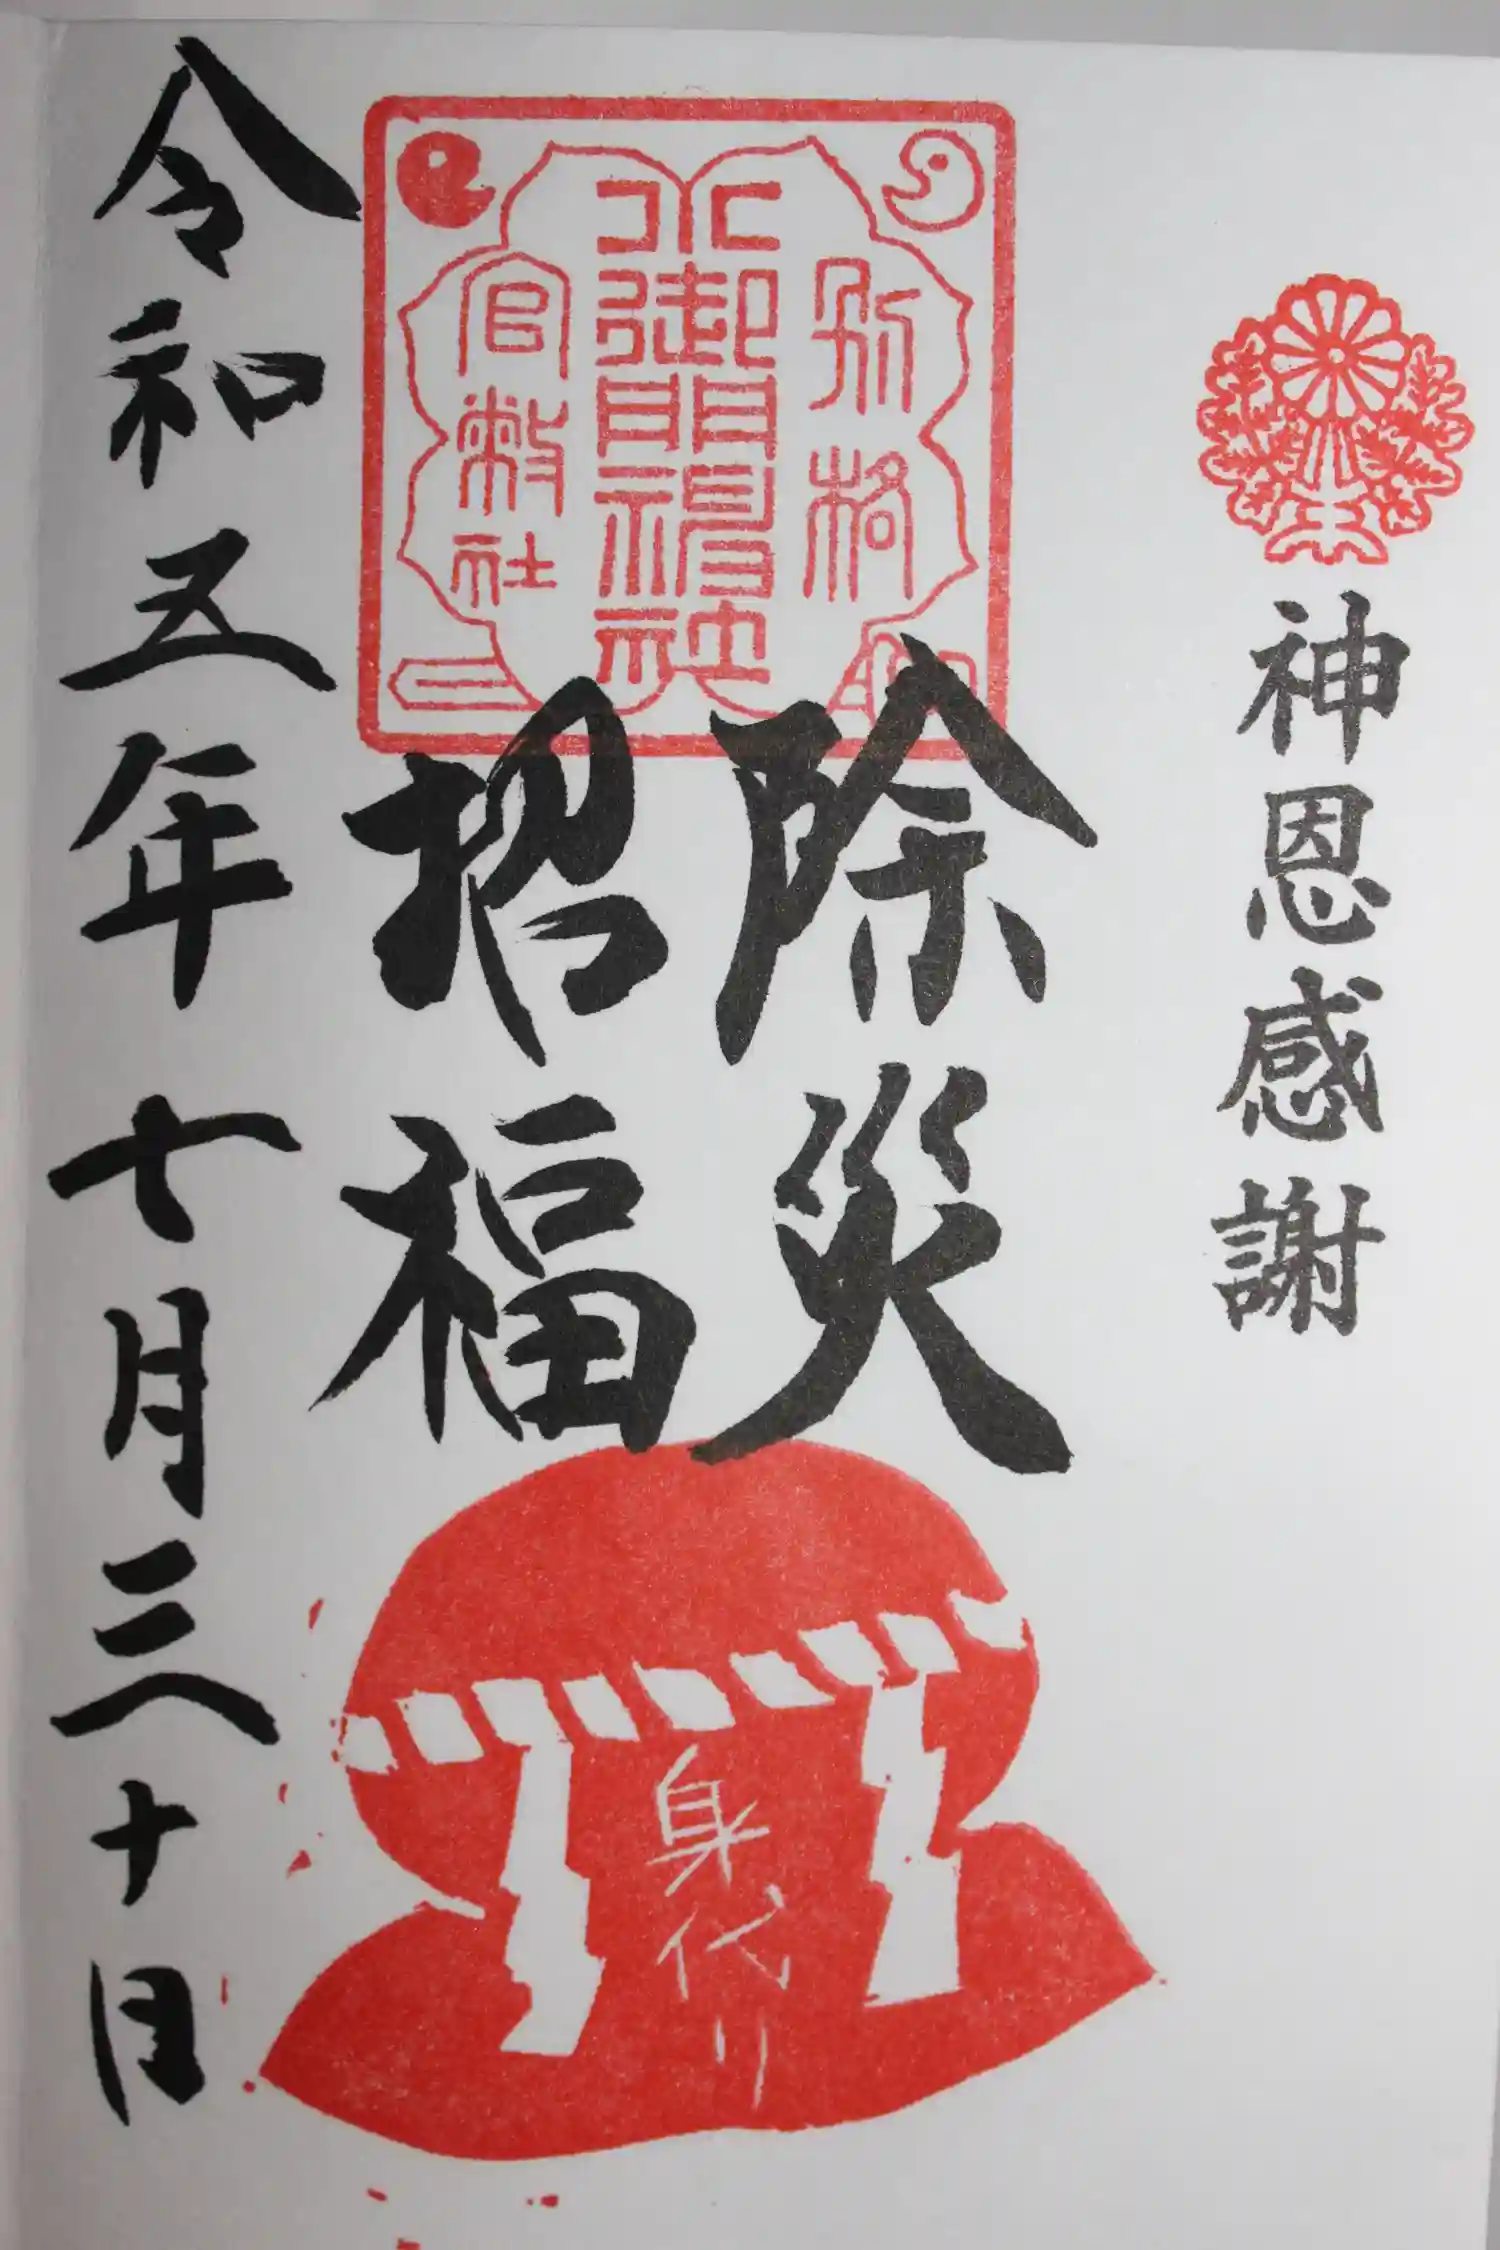 神恩感謝
別格
小御門神社
官幣社
除災
招福
身代り
令和五年七月三十日